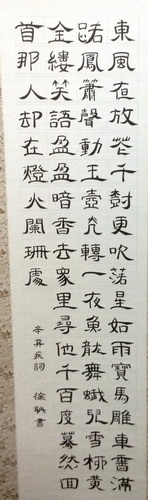 東風夜放花千樹更吹落星如雨寶馬雕車香滿
路鳳簫聲動玉壺光轉一夜魚龍舞蛾兒雪柳黃
金縷笑語盈盈暗香去眾里尋他千百度驀然回
首那人却在燈火闌珊處
辛弃疾詞 徐書